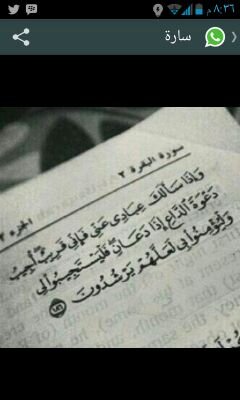 ٨:٣٦ م
سارة
سورة البقرة ٢
الجزء ٢
وَإِذَا سَأَلَكَ عِبَادِى عَنِّى فَإِنِّى قَرِيبٌ أُجِيبُ
دَعْوَةَ الدَّاعِ إِذَا دَعَانِ فَلْيَسْتَجِيبُوا لِى
وَلْيُؤْمِنُوا بِى لَعَلَّهُمْ يَرْشُدُونَ ١٨٦